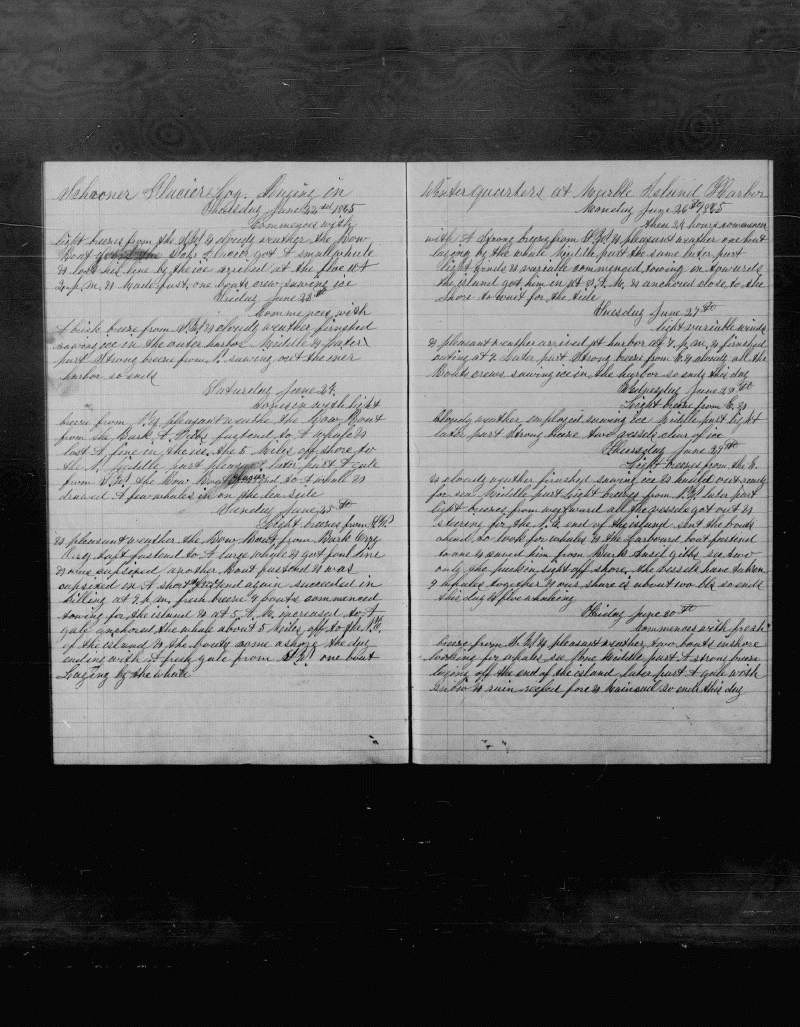 Schooner Glacier Log. Laying in
Thursday June 22nd 1865
Commences with
light breeze from the & cloudy weather the Bow
Boat Schr Glacier got A small whale
& lost her line by the ice arrived at the floe at
P.M. & made fast one boats crew sawing ice
Friday June 23rd
Commences with
A brisk breeze from & cloudy weather finished
sawing ice in the outer harbor Middle & Later
part strong breeze from sawing out the iner
harbor so ends
Saturday June 24
Comes in with light
breeze from pleasant weathe the Bow Boat
from the Bark A. fastend to A whale &
lost A line in the ice 5 Miles off shore to
the middle part later part A gale
from the Bow Boat fastend to A whale &
drawed A few whales in on the lee side
Sunday June 25th
Light breeze from
& pleasant weather the Bow Boat from Bark
fastend to A large whale & got foul line
& was capsized another Boat fastend & was
capsized in A short fastend again succeeded in
killing at P.M. fresh breeze 9 boats commenced
towing for the island & at 5 A.M. increased to A
gale anchored the whale about 5 Miles off to the
of the island & the boats came ashore the day
ending with A fresh gale from one boat
Laying by the whale
Winter quarters at Marble Island Harbor
Monday June 26th 1865
then 24 hours commences
with A Strong breeze from & pleasant weather one boat
laying by the whale Middle part the same later part
light winds & variable commenced towing in towards
the island got him in at A.M. & anchored close to the
shore to wait for the tide
Tuesday June 27th
light variable winds
& pleasant weather arrived at harbor at P.M. & finished
cuting at later part Strong breeze from & cloudy all the
Boats crews sawing ice in the harbor so ends this day
Wednesday June 28th
Light breeze from E. &
Cloudy weather employed sawing ice Middle part light
later part strong breeze two vessels clear of ice
Thursday June 29th
Light breezes from the E.
& cloudy weather finished sawing ice & hauled out ready
for sea Middle part Light breezes from later part
light breezes from westward all the vessels got out &
steering for the end of the island sent the boats
ahead to look for whales & the Larboard boat fastend
to one & saved him from Bark Ansel Gibbs see two
only one pack in sight off shore the vessels have taken
9 whales together & our share is about two so ends
this day & floe whaleing
Friday June 30th
Commences with fresh
breeze from & pleasant weather two boats inshore
looking for whales see none Middle part A strong breeze
laying off the end of the island later part A gale with
snow & rain reefed fore & mainsail so ends this day